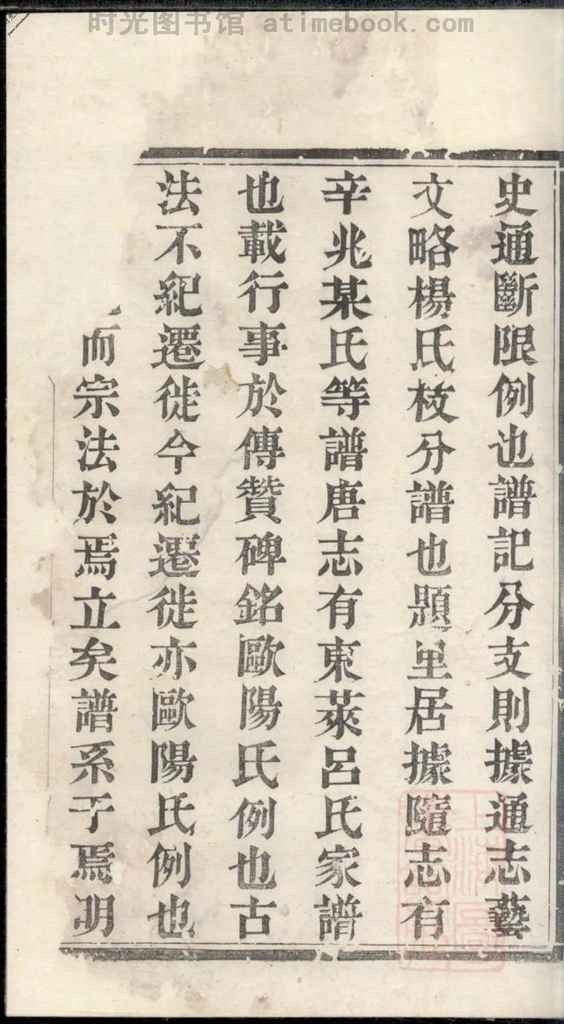 时光图书馆 atimebook.com
史通斷限例也譜記分支則據通志藝
文略楊氏枝分譜也題里居據隨志有
辛兆某氏等譜唐志有東萊呂氏家譜
也載行事於傳贊碑銘歐陽氏例也古
法不紀遷徙今紀遷徙亦歐陽氏例也
而宗法於焉立矣譜系于焉明